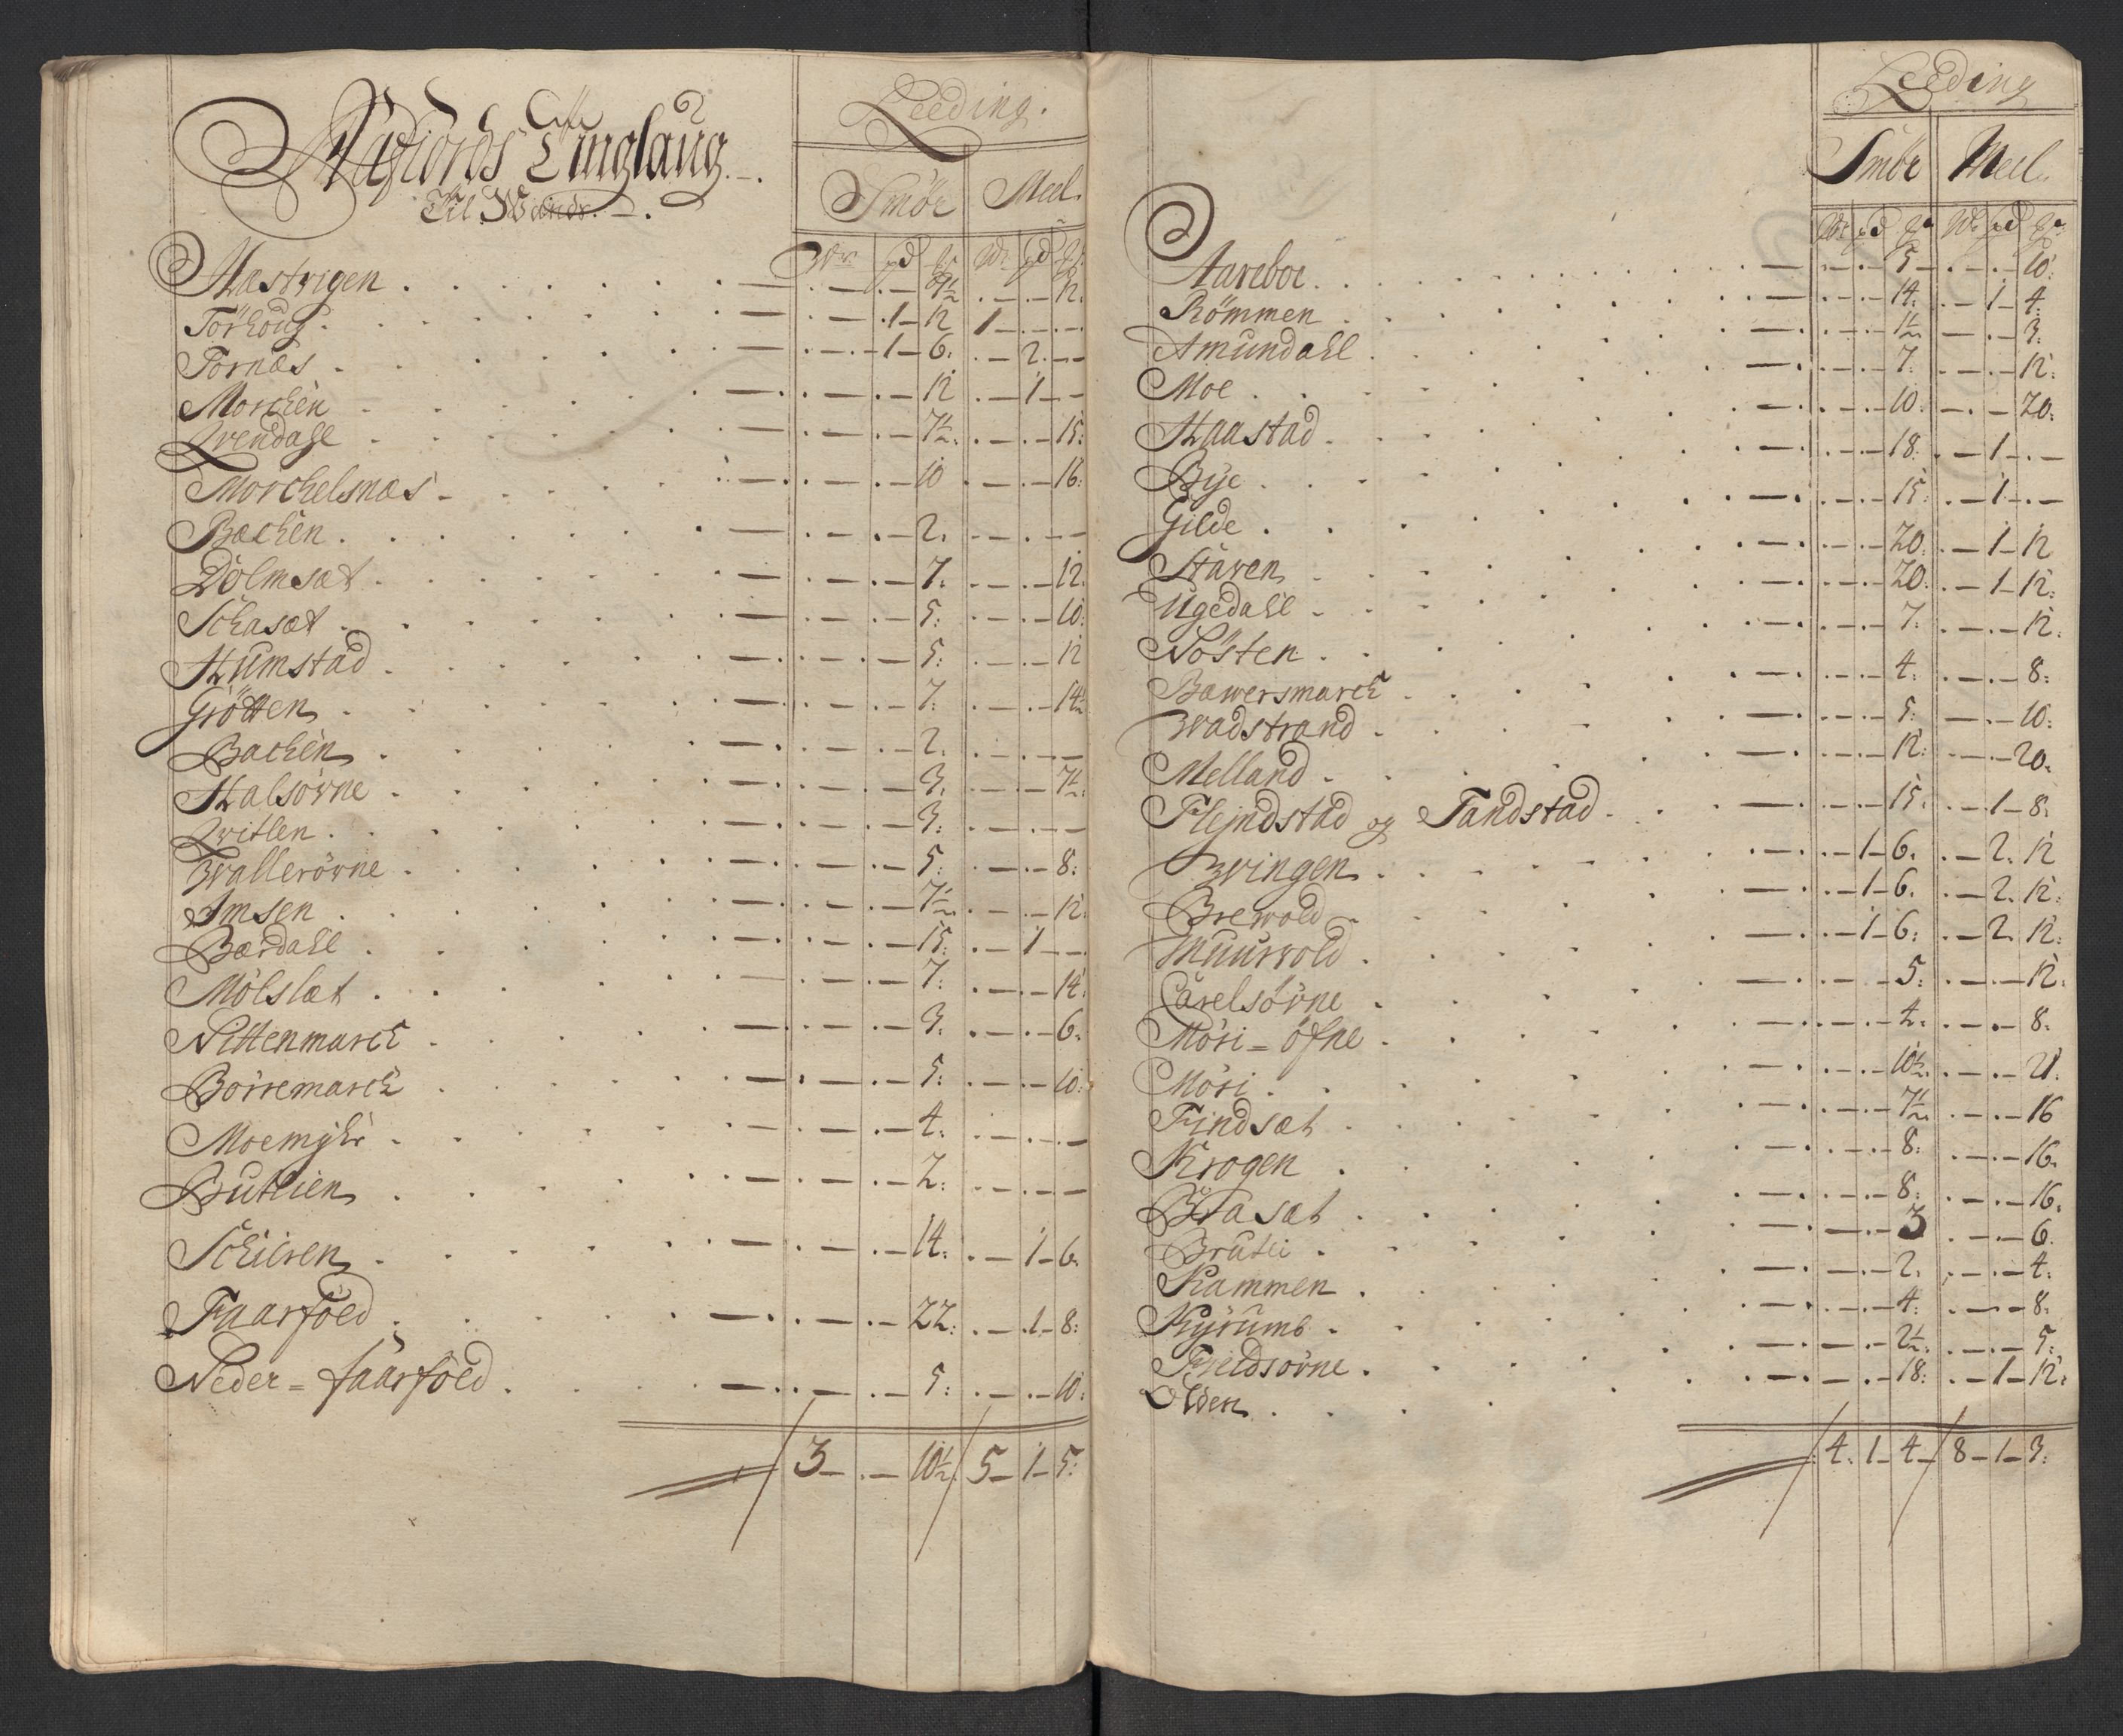 Tinglaug
Leeding.
Smör Meel
Hastrigen . . . — . — . — 9½ . — . — 12.
Törhoug . . . — . — 1 — 12 1 — . — . —
Tornæs . . . — . — 1 — 6. . — 2. —
Morchen . . . — . — . — 12 . — 1 — —
Qvendahl . . . — . — . — 7½. . — . — 15:
Morchelsnæs . . . — . — . — 10 . — . — 16:
Bachen . . . — . — . — 2. . — . — —
Dolmsæt . . . — . — . — 7. . — . — 12.
Schasæt . . . — . — . — 5. . — . — 10:
Humstad . . . — . — . — 5: . — . — 12
Grötten . . . — . — . — 7. . — . — 14½
Bachen . . . — . — . — 2. . — . — —
Halsörne . . . — . — . — 3. . — . — 7½.
Qvitlen . . . — . — . — 3: . — . — —
Wallerörne . . . — . — . — 5: . — . — 8:
Imsen . . . — . — . — 7½ . — . — 12.
Bærdahl . . . — . — . — 15: . — 1 — —
Mölslæt . . . — . — . — 7: . — . — 14:
Nittenmarch . . . — . — . — 3. . — . — 6:
Borremarch . . . — . — . — 5: . — . — 10:
Moemyhr . . . — . — . — 4. . — . — —
Butlien . . . — . — . — 2: . — . — —
Schieren . . . — . — . — 14: . — 1 — 6.
Faarföed . . . — . — . — 22: . — 1 — 8:
Neder = faarföed . . . — . — . — 5: . — . — 10:
3 — . — 10½. 5 — 1 — 5:
Leeding
Smör Meel
Aareboe . . . — . — . — 5 — . — . — 10:
Römmen . . . — . — . — 14. . — 1 — 4:
Amundahl . . . — . — . — 1½ . — . — 3:
Moe . . . — . — . — 7. . — . — 12:
Haastad . . . — . — . — 10. . — . — 20:
Bye . . . — . — . — 18: . — 1 — . —
Gilde . . . — . — . — 15: . — 1 — . —
Stüren . . . — . — . — 20. . — 1 — 12
Ugedahl . . . — . — . — 20. . — 1 — 12:
Nösten . . . — . — . — 7. . — . — 12.
Bæwersmarch . . . — . — . — 4. . — . — 8:
Wadstrand . . . — . — . — 5: . — . — 10:
Melland . . . — . — . — 12: . — . — 20.
Flejndstad og Tandstad . . . — . — . — 15: . — 1 — 8:
Wingen . . . — . — 1 — 6. . — 2. 12
Brewold . . . — . — 1 — 6. . — 2. 12:
Muurvold . . . — . — 1 — 6: . — 2. 12:
Carelsörne . . . — . — . — 5: . — . — 12:
Möri = öfne . . . — . — . — 4. . — . — 8.
Möri . . . — . — . — 10½. . — . — 21.
Findsæt . . . — . — . — 7½ . — . — 16
Krogen . . . — . — . — 8: . — . — 16.
Brasæt . . . — . — . — 8: . — . — 16.
Brütli . . . — . — . — 3 . — . — 6.
Kammen . . . — . — . — 2. . — . — 4:
Kyrumb . . . — . — . — 4: . — . — 8.
Fieldsörne . . . — . — . — 2½. . — . — 5:
Olden . . . — . — . — 18: . — 1 — 12:
4. 1 — 4 — 8 — 1 — 3: